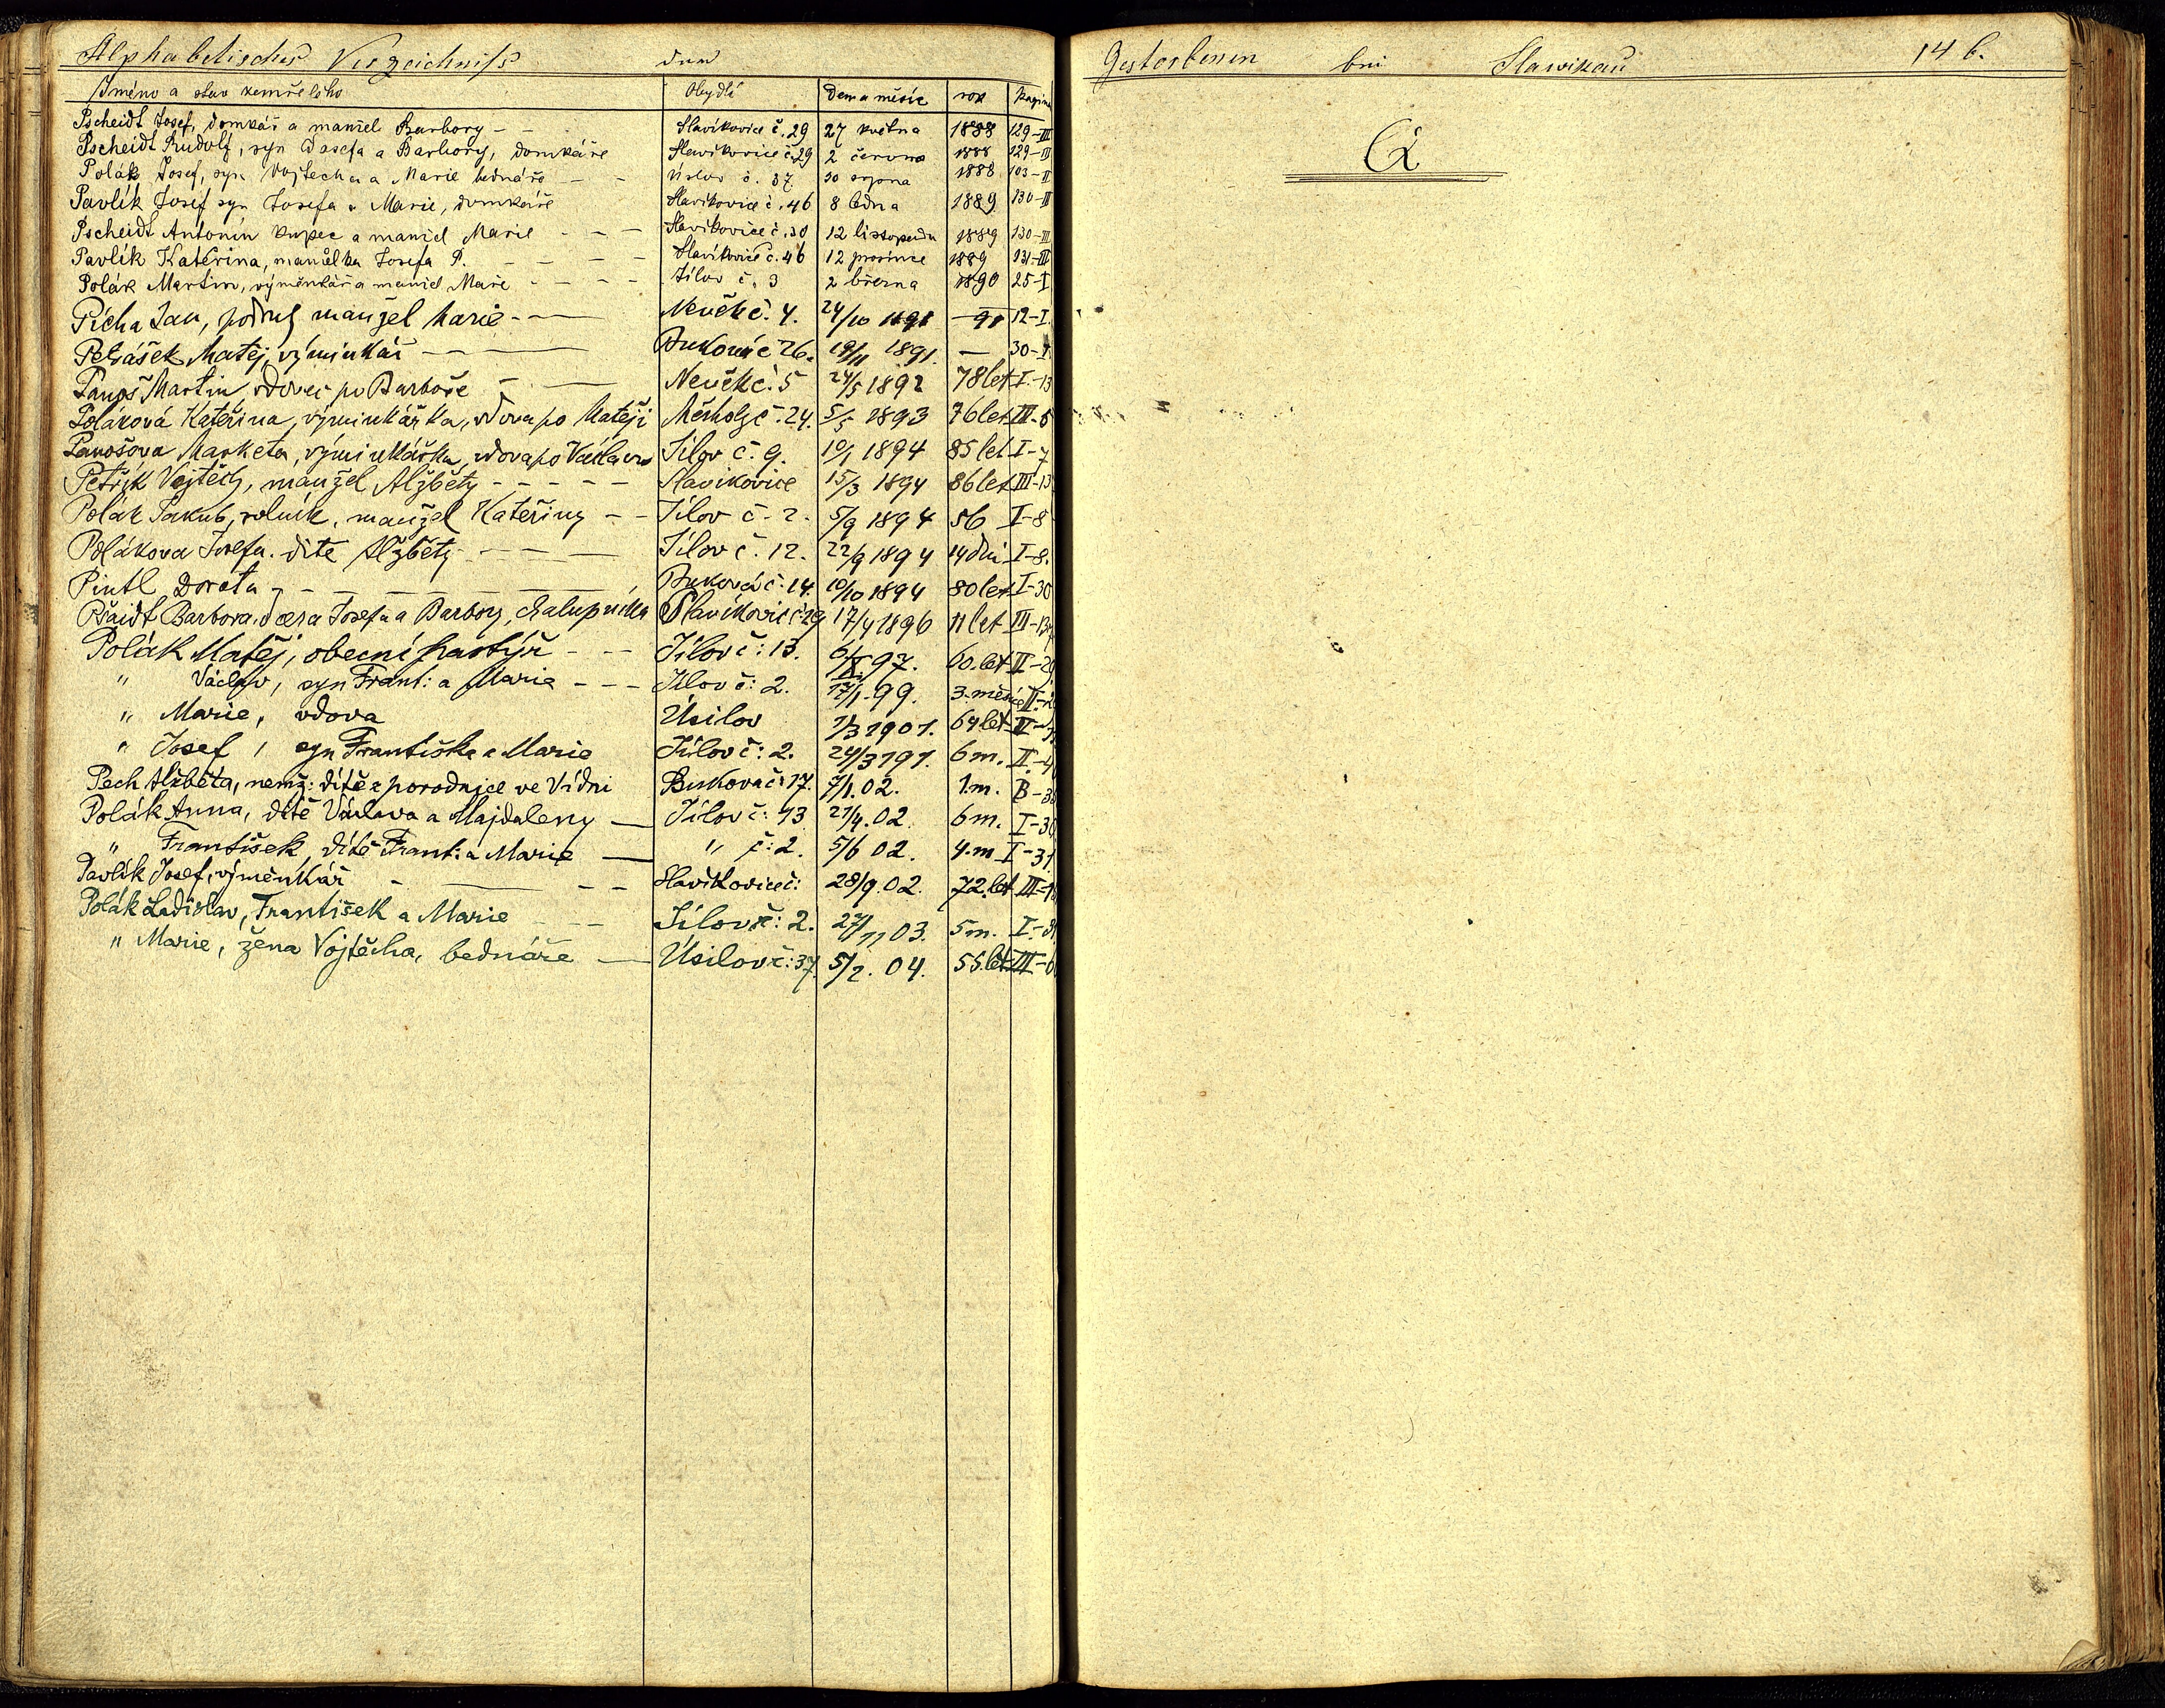 Alphabetisches Verzeichniss der
Jméno a stav zemřelého Obydlí Den a měsíc rok Pagina
Pscheidt Josef, domkář a manžel Barbory - - Slavíkovice č. 29 27 května 1888 129-III
Pscheidt Rudolf, syn Josefa a Barbory, domkáře Slavíkovice č. 29 2 června 1888 129-III
Polák Josef, syn Vojtěcha a Marie bednáře - - Úsilov č. 37 30 srpna 1888 103-II
Pavlík Josef syn Josefa a Marie, domkáře Slavíkovice č. 46 8 ledna 1889 130-III
Pscheidt Antonín kupec a manžel Marie - - - Slavíkovice č. 30 12 listopadu 1889 130-III
Pavlík Kateřina, manželka Josefa P. - - - - Slavíkovice č. 46 12 prosince 1889 131-III
Polák Martin, výměnkář a manžel Marie - - - - Jílov č. 3 2 března 1890 25-I
Pícha Jan, podruh manžel Marie - — Neučk č. 4. 24/10 1891 — 91 12-I.
Petrášek Matěj, výminkář — — Buková č 26. 19/11 1891. — 30-I.
Panoš Martin, vdovec po Barboře - — Neučk č. 5 24/5 1892 78 let I.-13
Poláková Kateřina, výminkářka, vdova po Matěji č. 24. 5/5 1893 76 let III-
Panošova Marketa, výminkářka, vdova po Václavu Jílov č. 9. 10/1 1894 85 let I-7
Petřík Vojtěch, manžel Alžběty - - - - - Slavíkovice 15/3 1894 86 let III-13
Polák Jakub, rolník, manžel Kateřiny - - Jílov č. 2. 5/9 1894 56 I-8
Polákova Josefa. dítě Alžběty - - — — Jílov č. 12. 22/9 1894 14 dní I-8.
Pintl Dorota - - — — — Buková č. 14. 10/10 1894 80 let I-30
Pšaidt Barbora, dcera Josefa a Barbory, chalupníka Slavíkovic č. 29 17/4 1896 11 let III-13
Polák Matěj, obecní pastýř - - - Jílov č: 13. 6/X 97. 60. let II-29
" Václav, syn Frant: a Marie - - - Jílov č: 2. 17/1. 99. 3. měsíc II-
" Marie, vdova Úsilov 1/3 1901. 64 let
" Josef, syn Františka a Marie Jílov č: 2. 24/3 191. 6 m. II.-
Pech Alžběta, nemž: dítě z porodnice ve Vídni Buková č: 17. 7/1. 02. 1. m. B-3
Polák Anna, dítě Václava a Majdaleny — Jílov č: 13 21/4. 02. 6 m. I-30
" František, dítě Frant: a Marie — " č: 2. 5/6 02. 4. m I-31
Pavlík Josef, výměnkář - — - - Slavíkovice č: 28/9. 02. 72. let III-
Polák Ladislav, František a Marie - - - Jílov č: 2. 27/11 03. 5 m. I.-
" Marie, žena Vojtěcha, bednáře — Úsilov č: 37. 5/2. 04. 55. let III-
Gestorbenen bei Slawikau 146.
Q